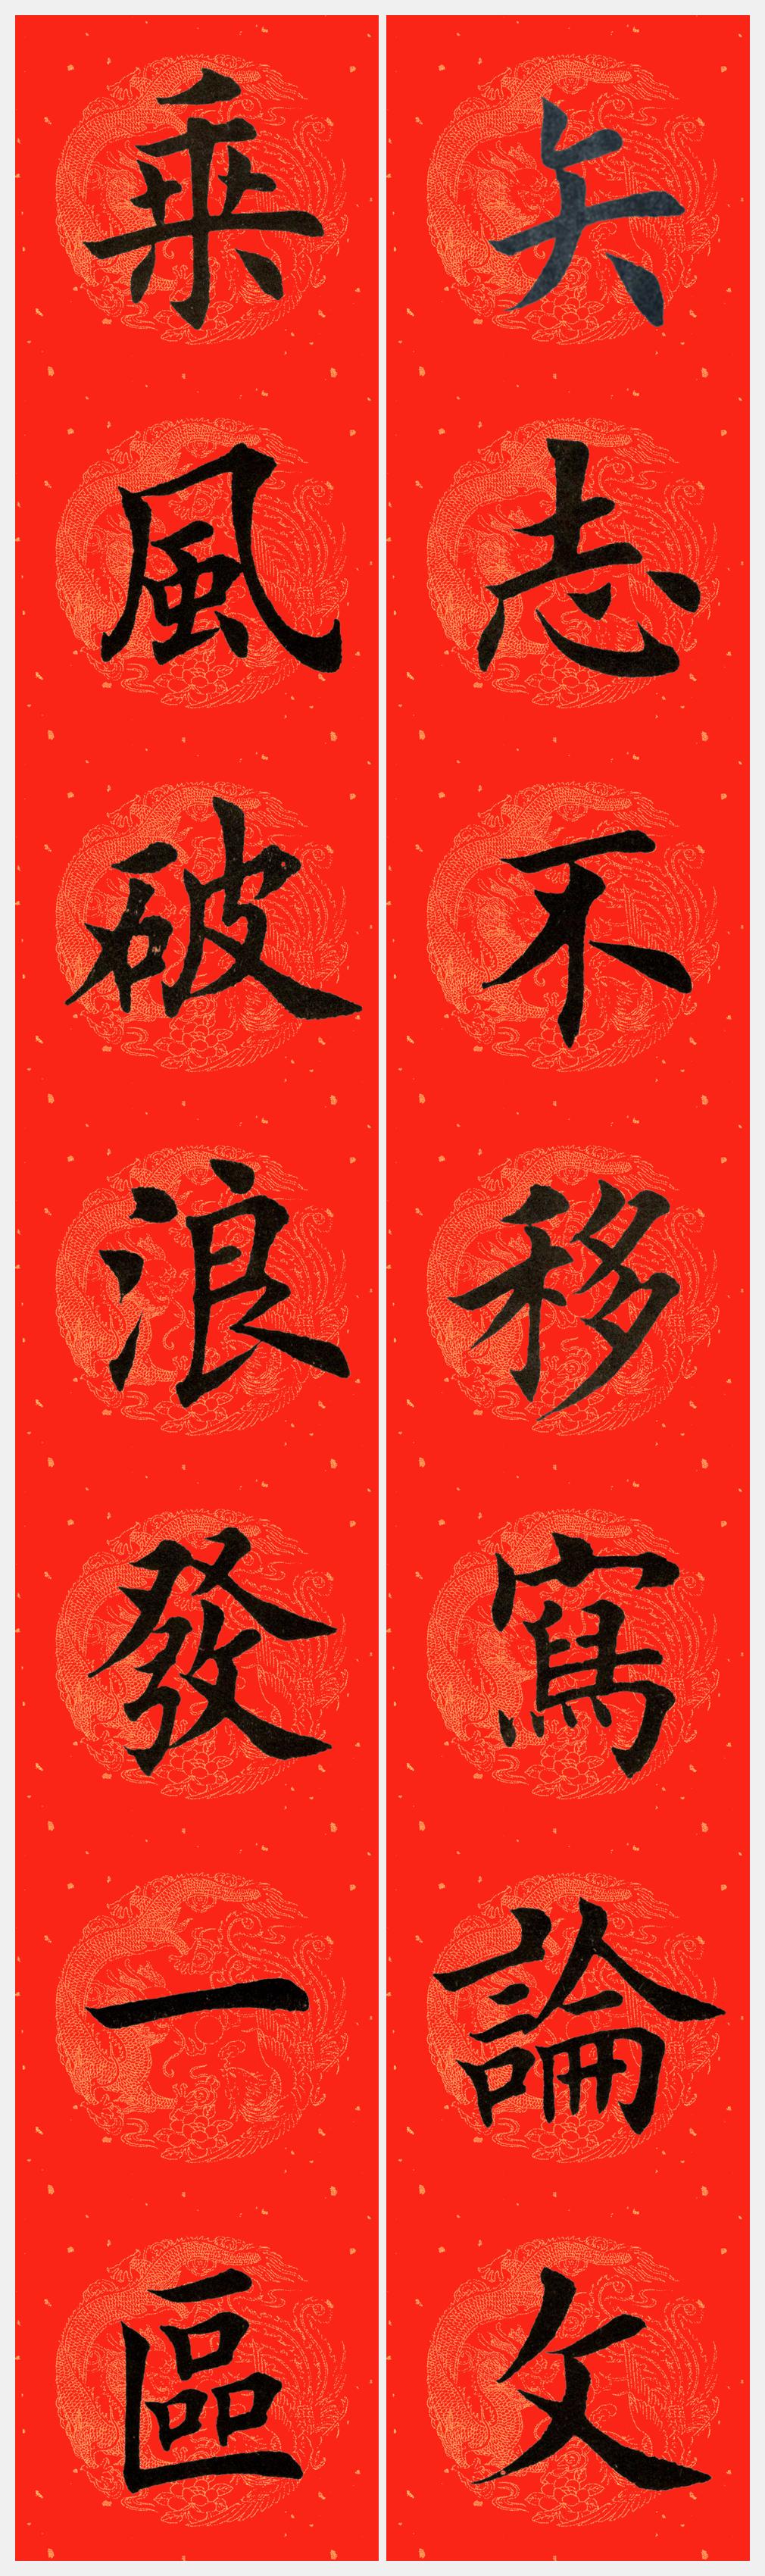 矢志不移寫論文
乘風破浪發一區